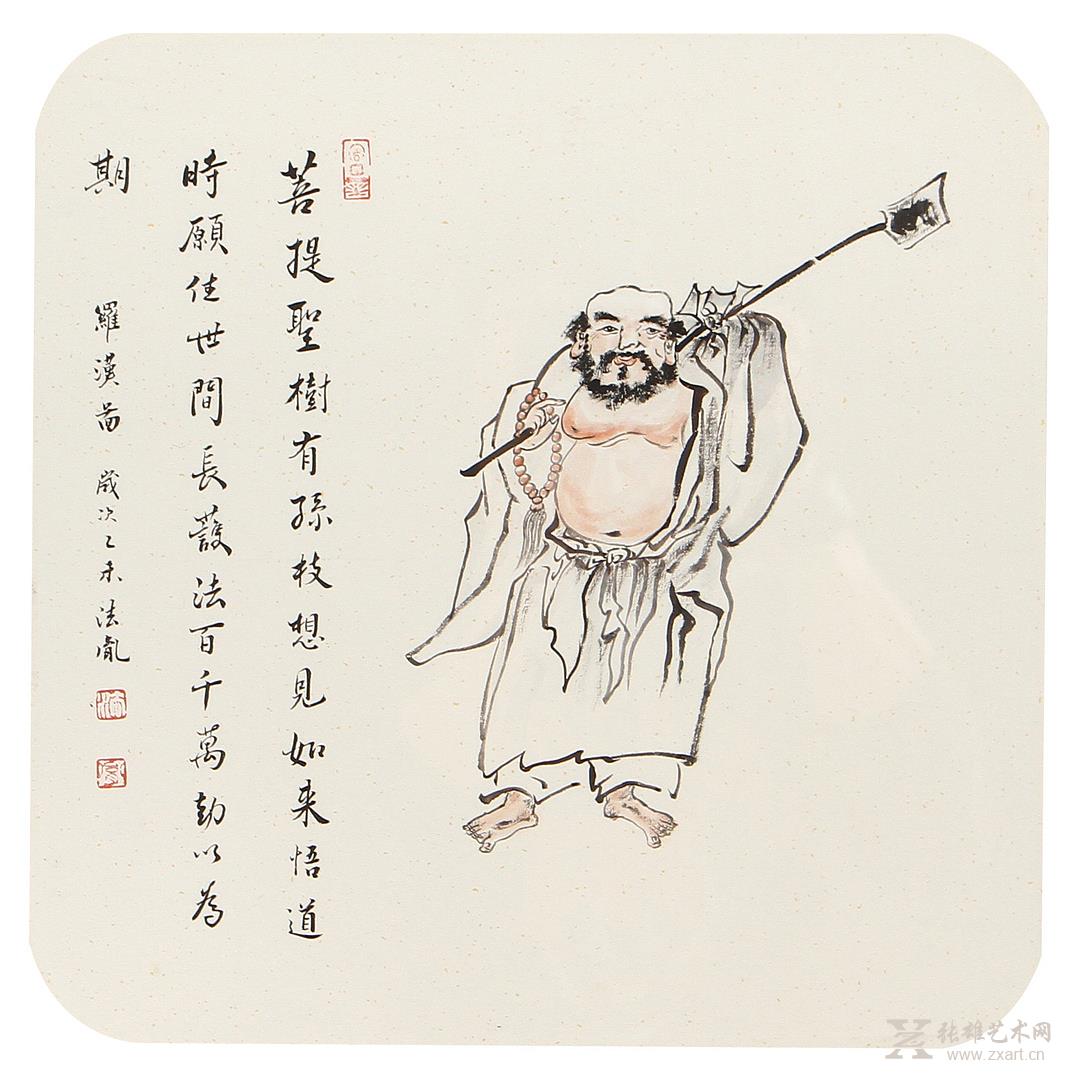 菩提聖樹有孫枝想見如来悟道
時願住世間長護法百千萬劫以為
期
羅漢畄 歲次乙未法胤
张雄艺术网
www.zxart.cn